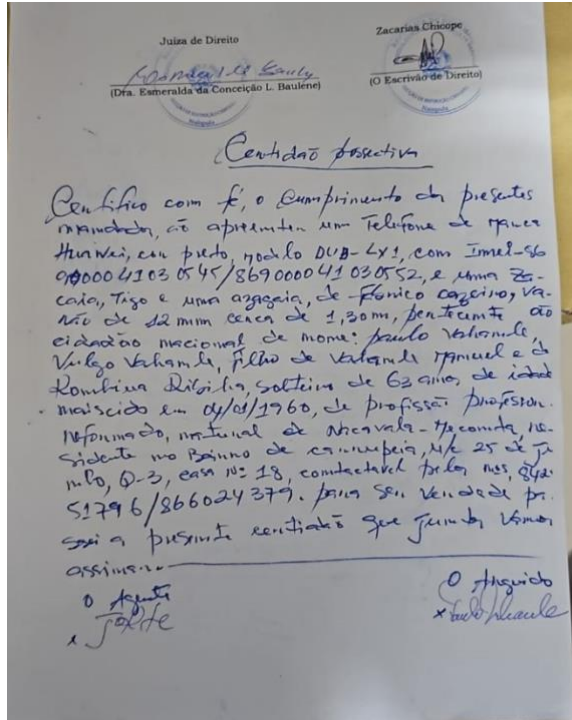 Juíza de Direito
Zacarias Chicope
(Dra. Esmeralda da Conceição L. Baulene)
(O Escrivão de Direito)
Certidão
Certifico com fé, o Cumprimento do presentes
mandado, ao apreender um Telefone de marca
Huawei, cor preto, modelo DUB-LX1, com Imei-86
9000041030545/869000041030552, e uma
e uma azagaia, de
de 12 mm cerca de 1,30m, pertencente ao
cidadão nacional de nome: Paulo Vahamle,
Vulgo Vahamle, filho de Vahamle Manuel e de
Rombina solteiro de 63 anos de idade
naiscido em 04/01/1960, de profissão professor
reformado, natural de Nacavala-Meconta, re-
sidente no Bairro de U/c 25 de Ju
nho, Q-3, casa nº 18, contactavel pelos nos, 842
51796/866024379. para ser verdade pa
ssei a presente certidão que juntos vamos
assinar.
O Agente
O Arguido